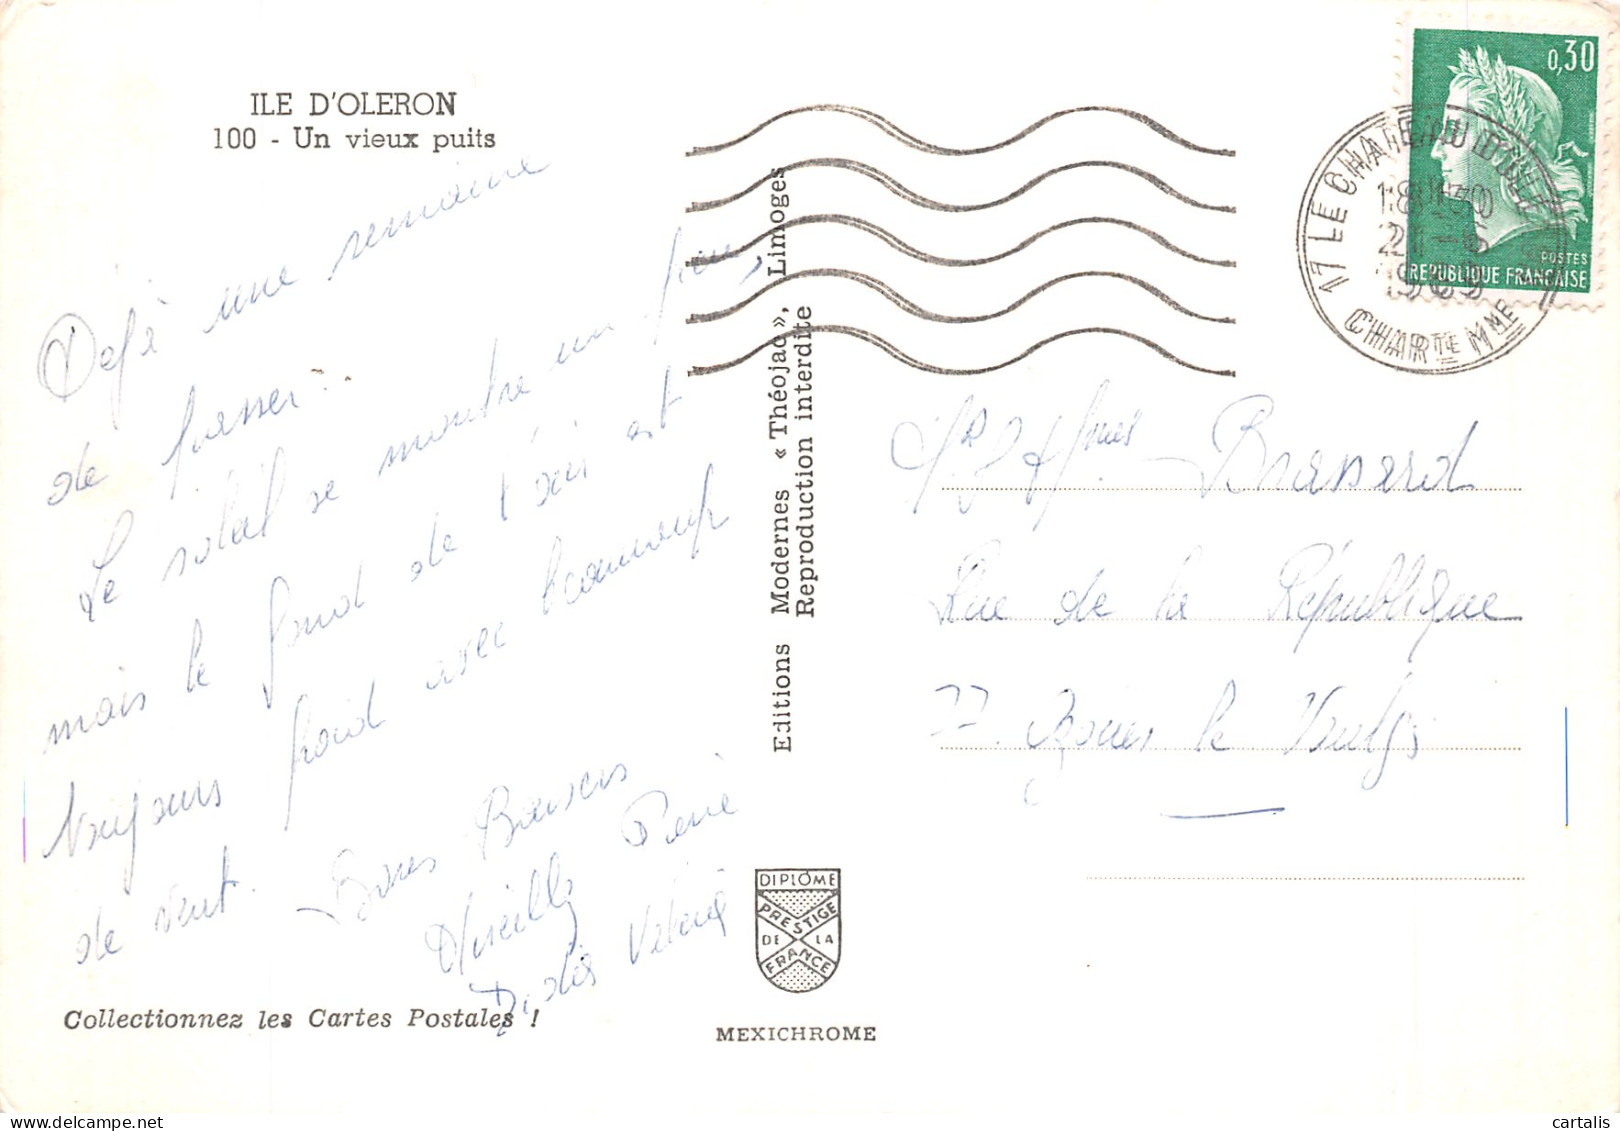 ILE D'OLERON
100 - Un vieux puits
Déjà une semaine
de passer.
Le soleil se montre un peu,
mais le fond de l'air est
toujours froid avec beaucoup
de vent. Bons Baisers
Mireille Pierre
Didier
Collectionnez les Cartes Postales !
Editions Modernes « Théojac », Limoges
Reproduction interdite
DIPLÔME
PRESTIGE
DE LA
FRANCE
MEXICHROME
0,30
POSTES
REPUBLIQUE FRANÇAISE
17 LE CHATEAU D'OLERON
18H30
1969
CHARTE MME
Brassard
Rue de la République
77. le
cartalis